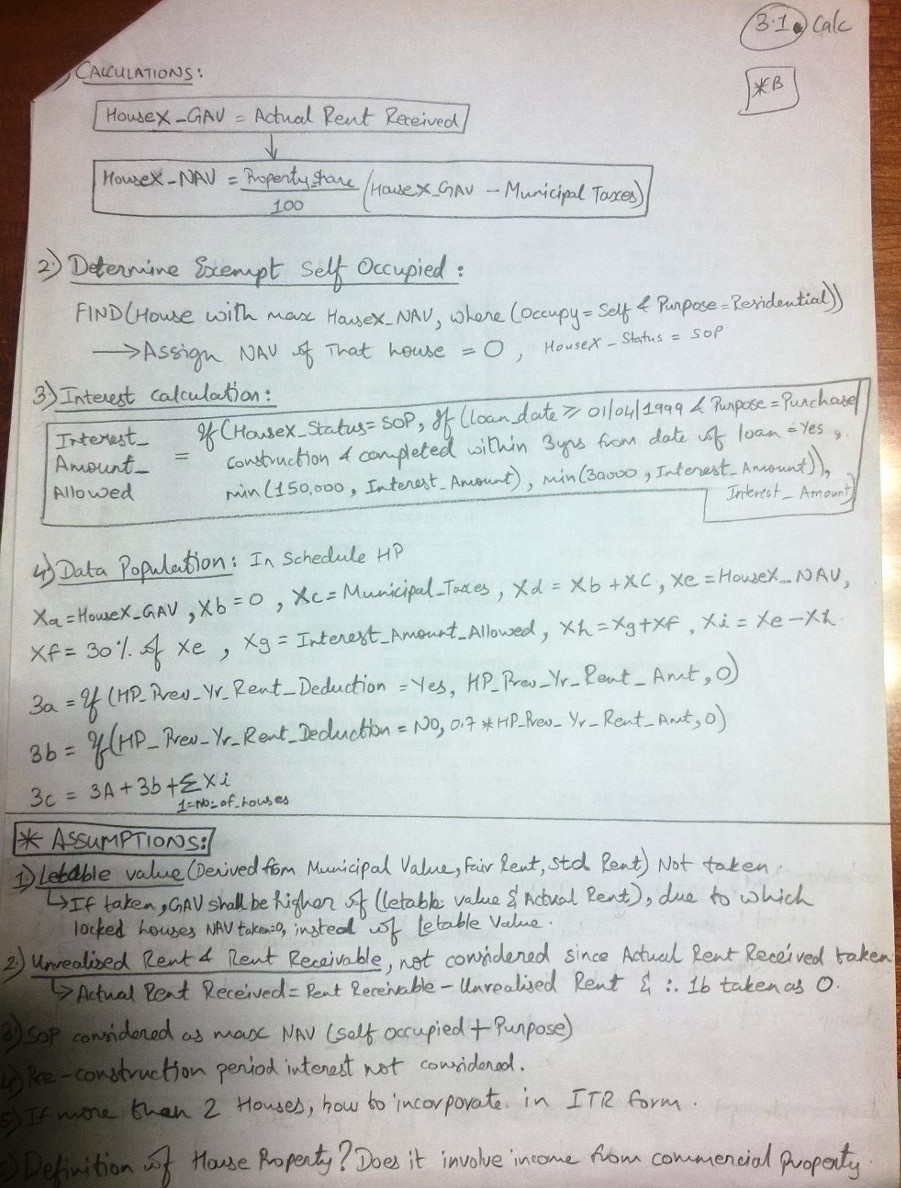 3.1. Calc
*B
CALCULATIONS:
HouseX_GAV = Actual Rent Received
HouseX_NAV = Property_share/100 (HouseX_GAV - Municipal Taxes)
2) Determine Exempt Self Occupied:
FIND(House with max HouseX_NAV, where (Occupy = Self & Purpose = Residential))
→ Assign NAV of that house = 0, HouseX-Status = SOP
3) Interest calculation:
Interest_Amount_Allowed = If (HouseX_Status = SOP, If (loan_date ≥ 01/04/1999 & Purpose = Purchase/
construction & completed within 3yrs from date of loan = Yes,
min(150,000, Interest_Amount), min(30000, Interest_Amount)),
Interest_Amount)
4) Data Population: In Schedule HP
Xa = HouseX_GAV, Xb = 0, Xc = Municipal_Taxes, Xd = Xb + XC, Xe = HouseX_NAV,
Xf = 30% of Xe, Xg = Interest_Amount_Allowed, Xh = Xg+Xf, Xi = Xe-Xh.
3a = If (HP_Prev_Yr_Rent_Deduction = Yes, HP_Prev_Yr_Rent_Amt, 0)
3b = If (HP_Prev_Yr_Rent_Deduction = NO, 0.7 * HP_Prev_Yr_Rent_Amt, 0)
3c = 3A + 3b + Σ Xi
1=No_of_houses
* ASSUMPTIONS:
1) Letable value (Derived from Municipal Value, Fair Rent, Std Rent) Not taken.
↳ If taken, GAV shall be higher of (letable value & Actual Rent), due to which
locked houses NAV taken=0, insted of Letable Value.
2) Unrealised Rent & Rent Receivable, not considered since Actual Rent Received taken
↳ Actual Rent Received = Rent Receivable - Unrealised Rent & ∴ 1b taken as 0.
3) SOP considered as max NAV (self occupied + Purpose)
4) Pre-construction period interest not considered.
5) If more than 2 Houses, how to incorporate in ITR form.
) Definition of House Property? Does it involve income from commercial property.